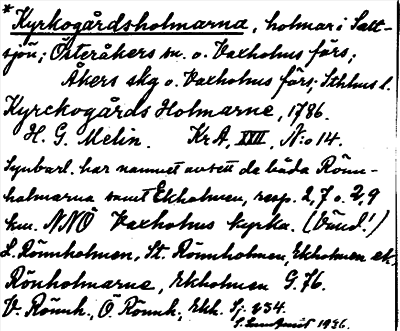 * Kyrkogårdsholmarna, holmar i Salt-
sjön; Österåkers sn. o. Vaxholms förs;
Åkers skg o. Vaxholms förs; Sthlms l.
Kyrckogårds Holmarne, 1786.
H. G. Melin. Kr A, XXII, N:o 14.
Synbarl. har namnet avsett de båda Rönn-
holmarna samt Ekholmen, resp. 2,7 o. 2,9
km. NNÖ Vaxholms kyrka. (Vänd!)
L. Rönnholmen, St. Rönnholmen, Ekholmen ek.
Rönholmarne, Ekholmen G. 76.
V. Rönnh., Ö Rönnh., Ekh. Sj. 234.
1936.